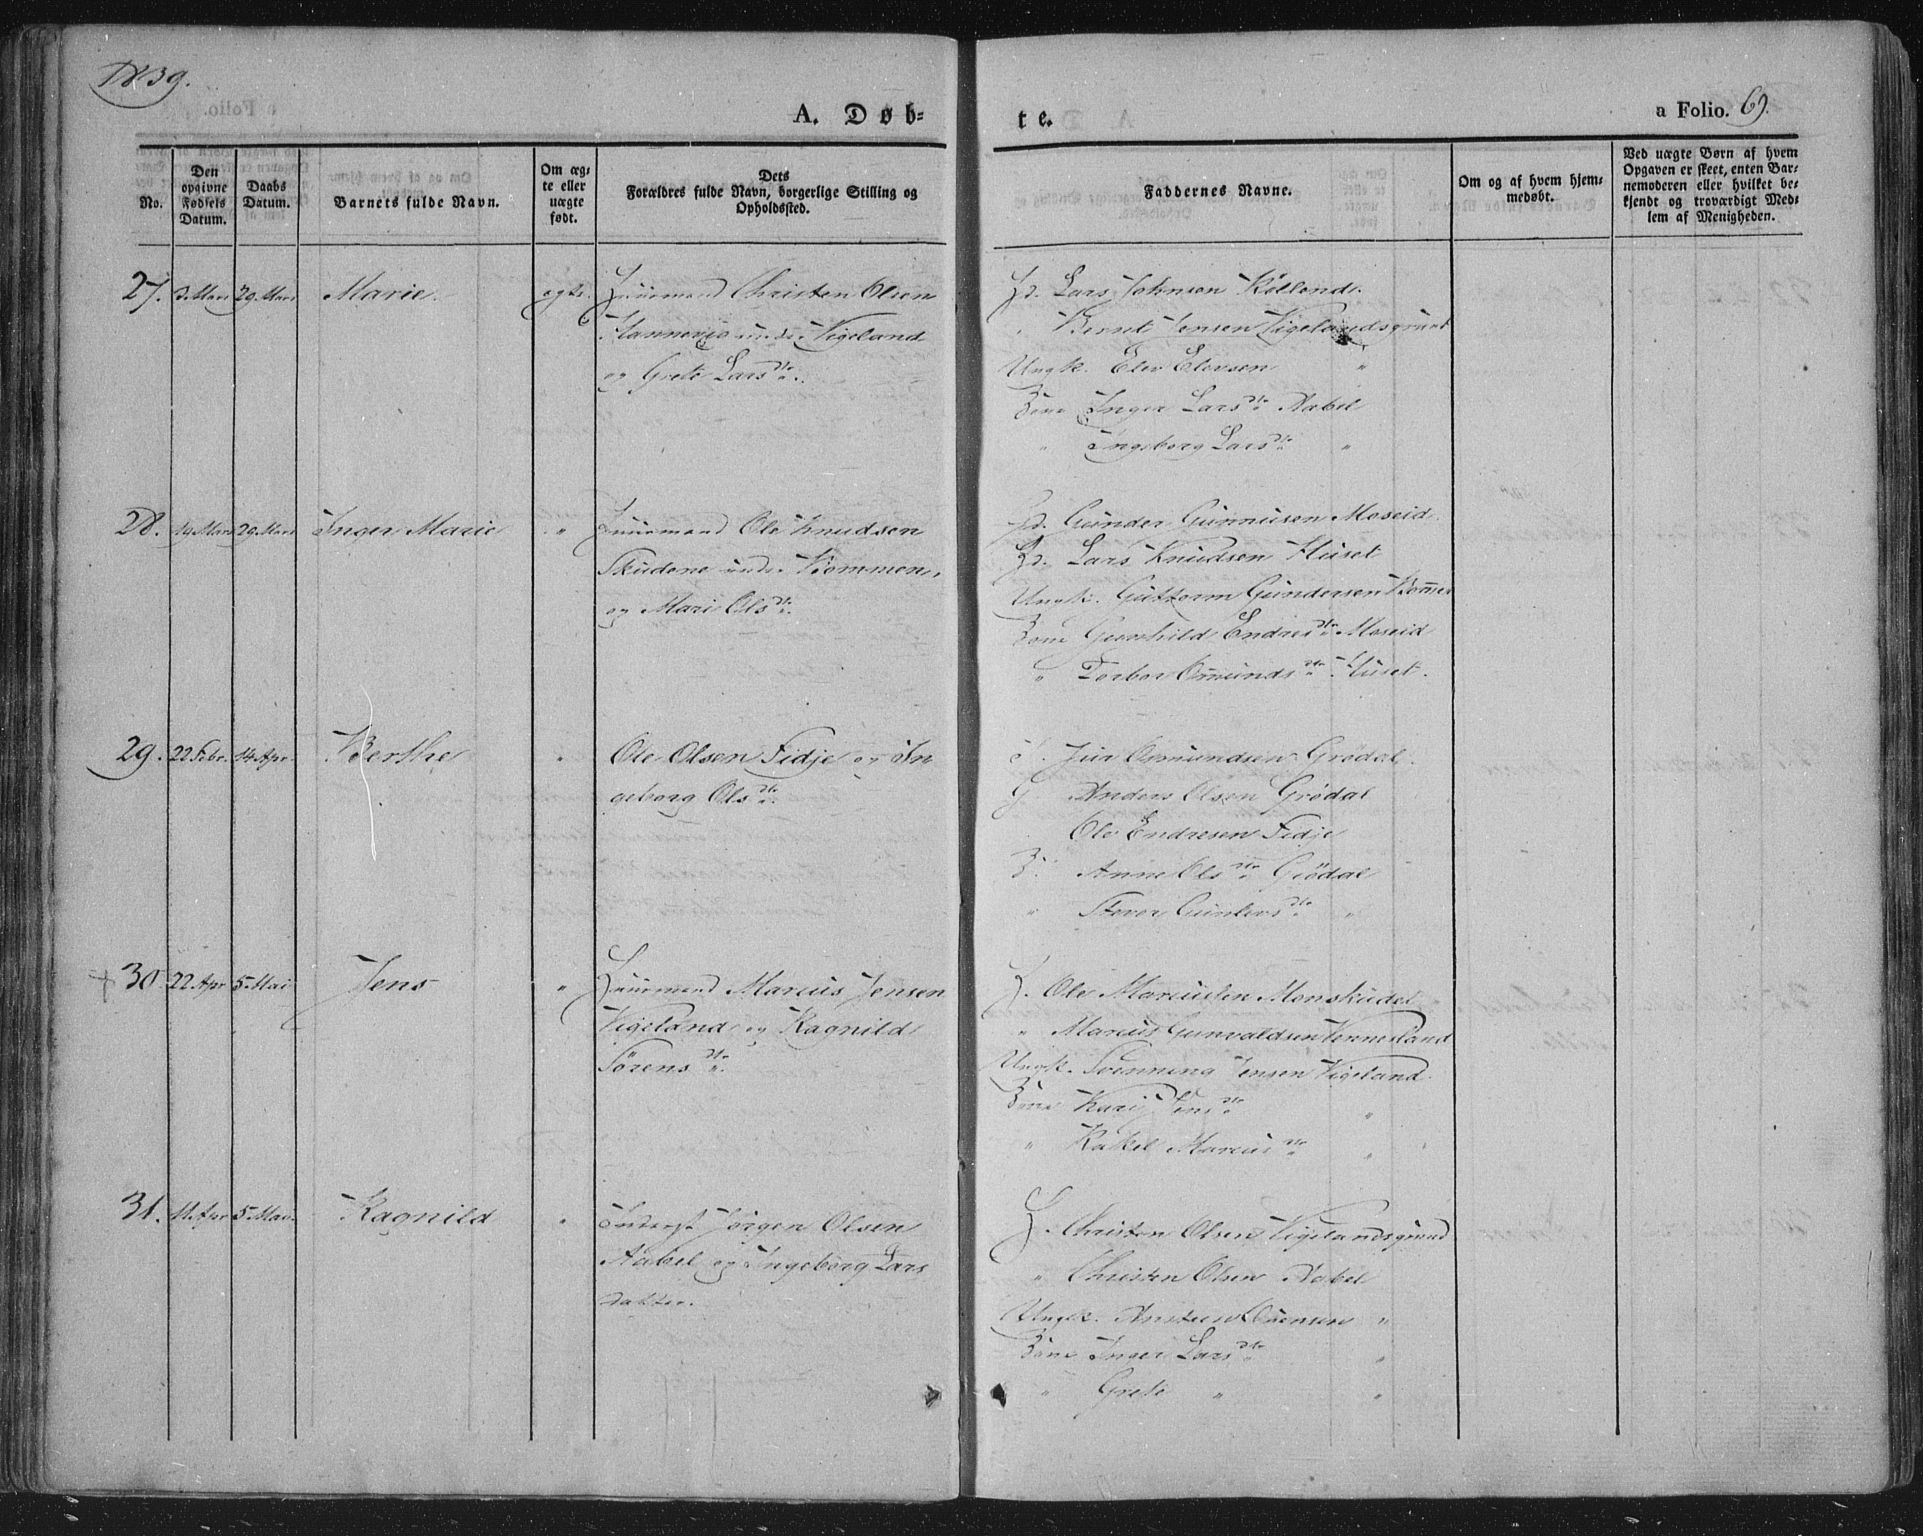 1839.
A. Døb-
te.
a Folio. 69.
No.
Den opgivne Fødsels Datum.
Daabs Datum.
Barnets fulde Navn.
Om ægte eller uægte født.
Dets Forældres fulde Navn, borgerlige Stilling og Opholdssted.
Faddernes Navne.
Om og af hvem hjemmedøbt.
Ved uægte Børn af hvem Opgaven er skeet, enten Barnemoderen eller hvilket bekjendt og troværdigt Medlem af Menigheden.
27. 3. Mars 29. Mars Marie. ægte. Huusmand Christen Olsen
under Vigeland
og Grete Larsdtr.
Gd. Lars Johnsen
" Bernt Jensen Vigelandsgrund
Ungk. Elev Elevsen "
Kone Inger Larsdtr Aabel
" Ingeborg Larsdtr "
28. 19. Mars 29. Mars Inger Marie " Huusmand Ole Knudsen
under Kommen,
og Mari Olsdtr.
Gd. Gunder Gunnusen Moseid.
Hd. Lars Knudsen Huset
Ungk. Guttorm Gundersen
Kone Gunhild Endresdtr Moseid
" Torbor Omundsdtr Huset.
29. 22 Febr. 14 Apr. Berthe " Ole Olsen Fidje og In
geborg Olsdtr.
Omundsen Grødal.
G Anders Olsen Grødal
Ole Endresen Fidje
K. Anne Olsdtr Grødal
"
30 22 Apr 5 Mai Jens " Huusmand Marcus Jensen
Vigeland og Ragnild
Sørensdtr.
H. Ole Marcussen Monskudet
" Marcus Gunvaldsen Vennesland
Ungk. Svenning Jensen Vigeland.
Kone Kari Jensdtr "
" Rakel Marcusdtr "
31. 11. Apr 5 Mai. Ragnild " Jørgen Olsen
Aabel og Ingeborg Lars
datter.
H. Christen Olsen Vigelandsgrund
" Christen Olsen Aabel
Ungk. "
Kone Inger Larsdtr "
" Grete " "